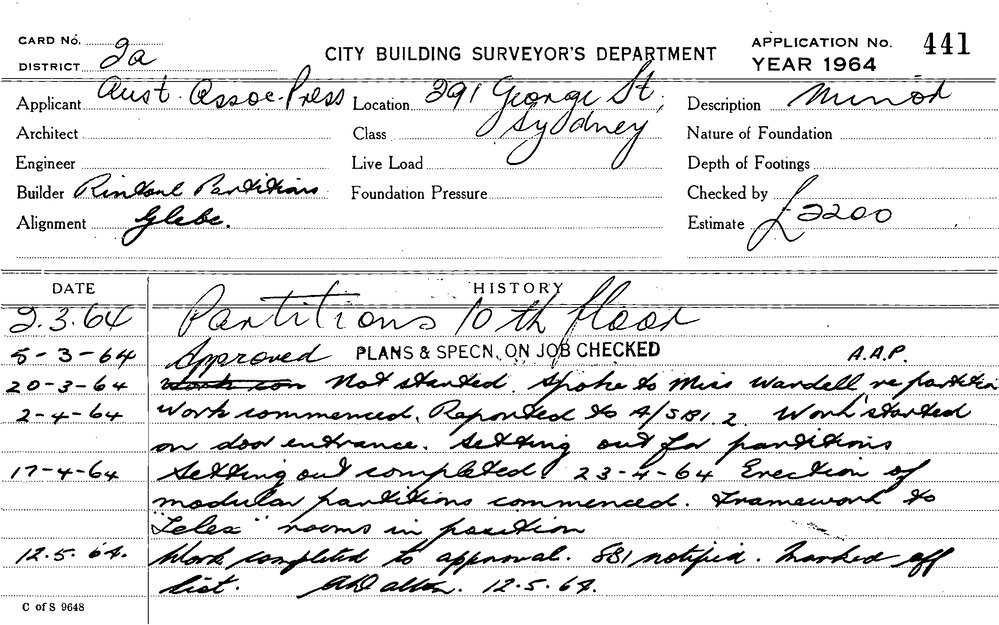 CARD No.
DISTRICT 2a
CITY BUILDING SURVEYOR'S DEPARTMENT
APPLICATION No. 441
YEAR 1964
Applicant Aust. Assoc. Press
Location 291 George St,
Sydney
Description Minor
Architect
Class
Nature of Foundation
Engineer
Live Load
Depth of Footings
Builder Rintoul Partitions
Foundation Pressure
Checked by
Alignment Glebe.
Estimate £2200
DATE HISTORY
2.3.64 Partitions 10th floor
5-3-64 Approved PLANS & SPECN, ON JOB CHECKED A.A.P.
20-3-64 Not started. Spoke to Miss Wardell re partitio
2-4-64 Work commenced. Reported to A/SBI 2. Work started
on door entrance. Setting out for partitions
17-4-64 Setting out completed. 23-4-64 Erection of
modular partitions commenced. Framework to
"Telex" rooms in position
12.5.64. Work completed to approval. SBI notified. Marked off
list. 12.5.64.
C of S 9648